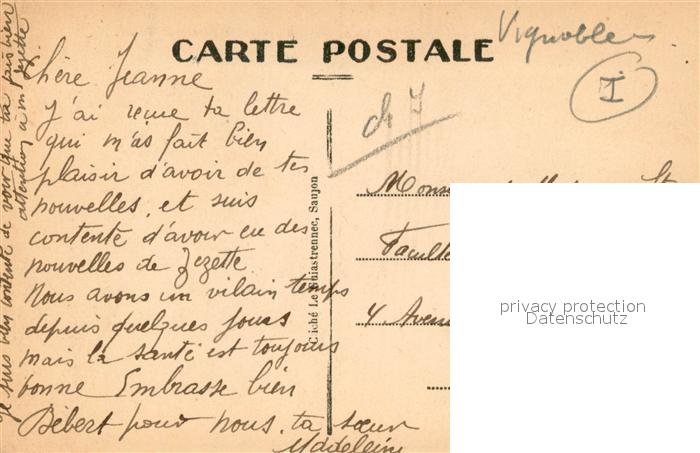 CARTE POSTALE
Vignobles
I
ch I
Chère Jeanne
J'ai reçue ta lettre
qui m'as fait bien
plaisir d'avoir de tes
nouvelles, et suis
contente d'avoir eu des
nouvelles de Zezette
Nous avons un vilain temps
depuis quelques jours
mais la santé est toujours
bonne Embrasse bien
Bébert pour nous, ta sœur
Madeleine
Je suis bien contente de voir que tu fais bien
attention à m Zezette
Cliché Le Guiastrennec, Saujon
Faculté
4 Avenue
privacy protection
Datenschutz